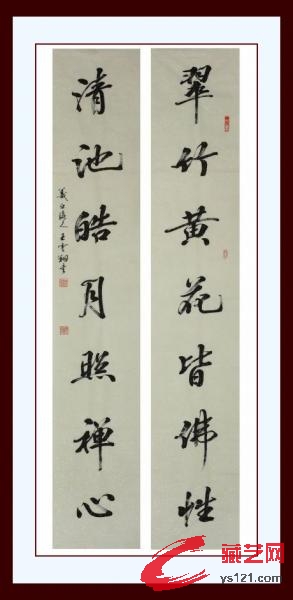 翠竹黄花皆佛性
清池皓月照禅心
藏艺网
ys121.com